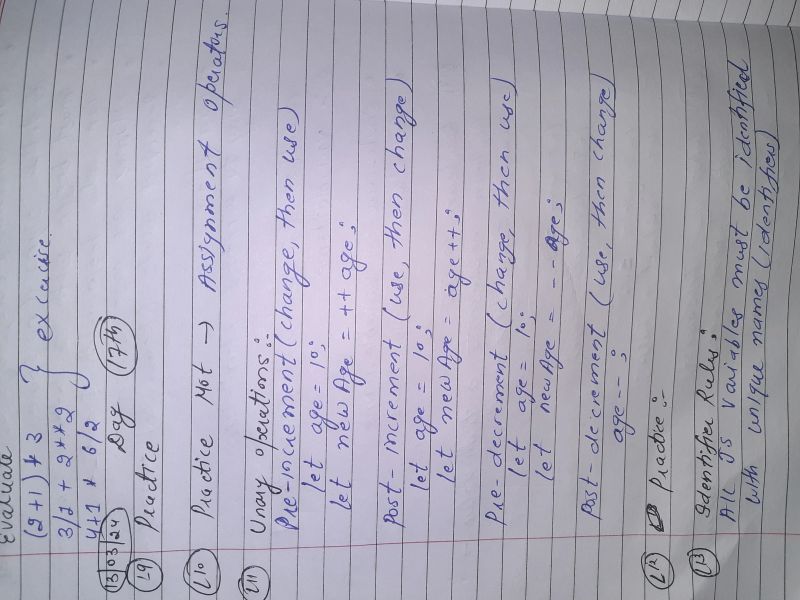 Evaluate
(2+1) * 3
3/2 + 2**2
4+1 * 6/2
} excercise
13/03/24 Day 17th
L9 Practice
L10 Practice Mot → Assignment operators.
L11 Unary operations:-
Pre-increment (change, then use)
let age = 10;
let newAge = ++age;
Post-increment (use, then change)
let age = 10;
let newAge = age++;
Pre-decrement (change, then use)
let age = 10;
let newAge = --age;
Post-decrement (use, then change)
age--;
L12 Practice:-
L13 Identifier Rules;
All JS variables must be identified
with unique names (identifiers)